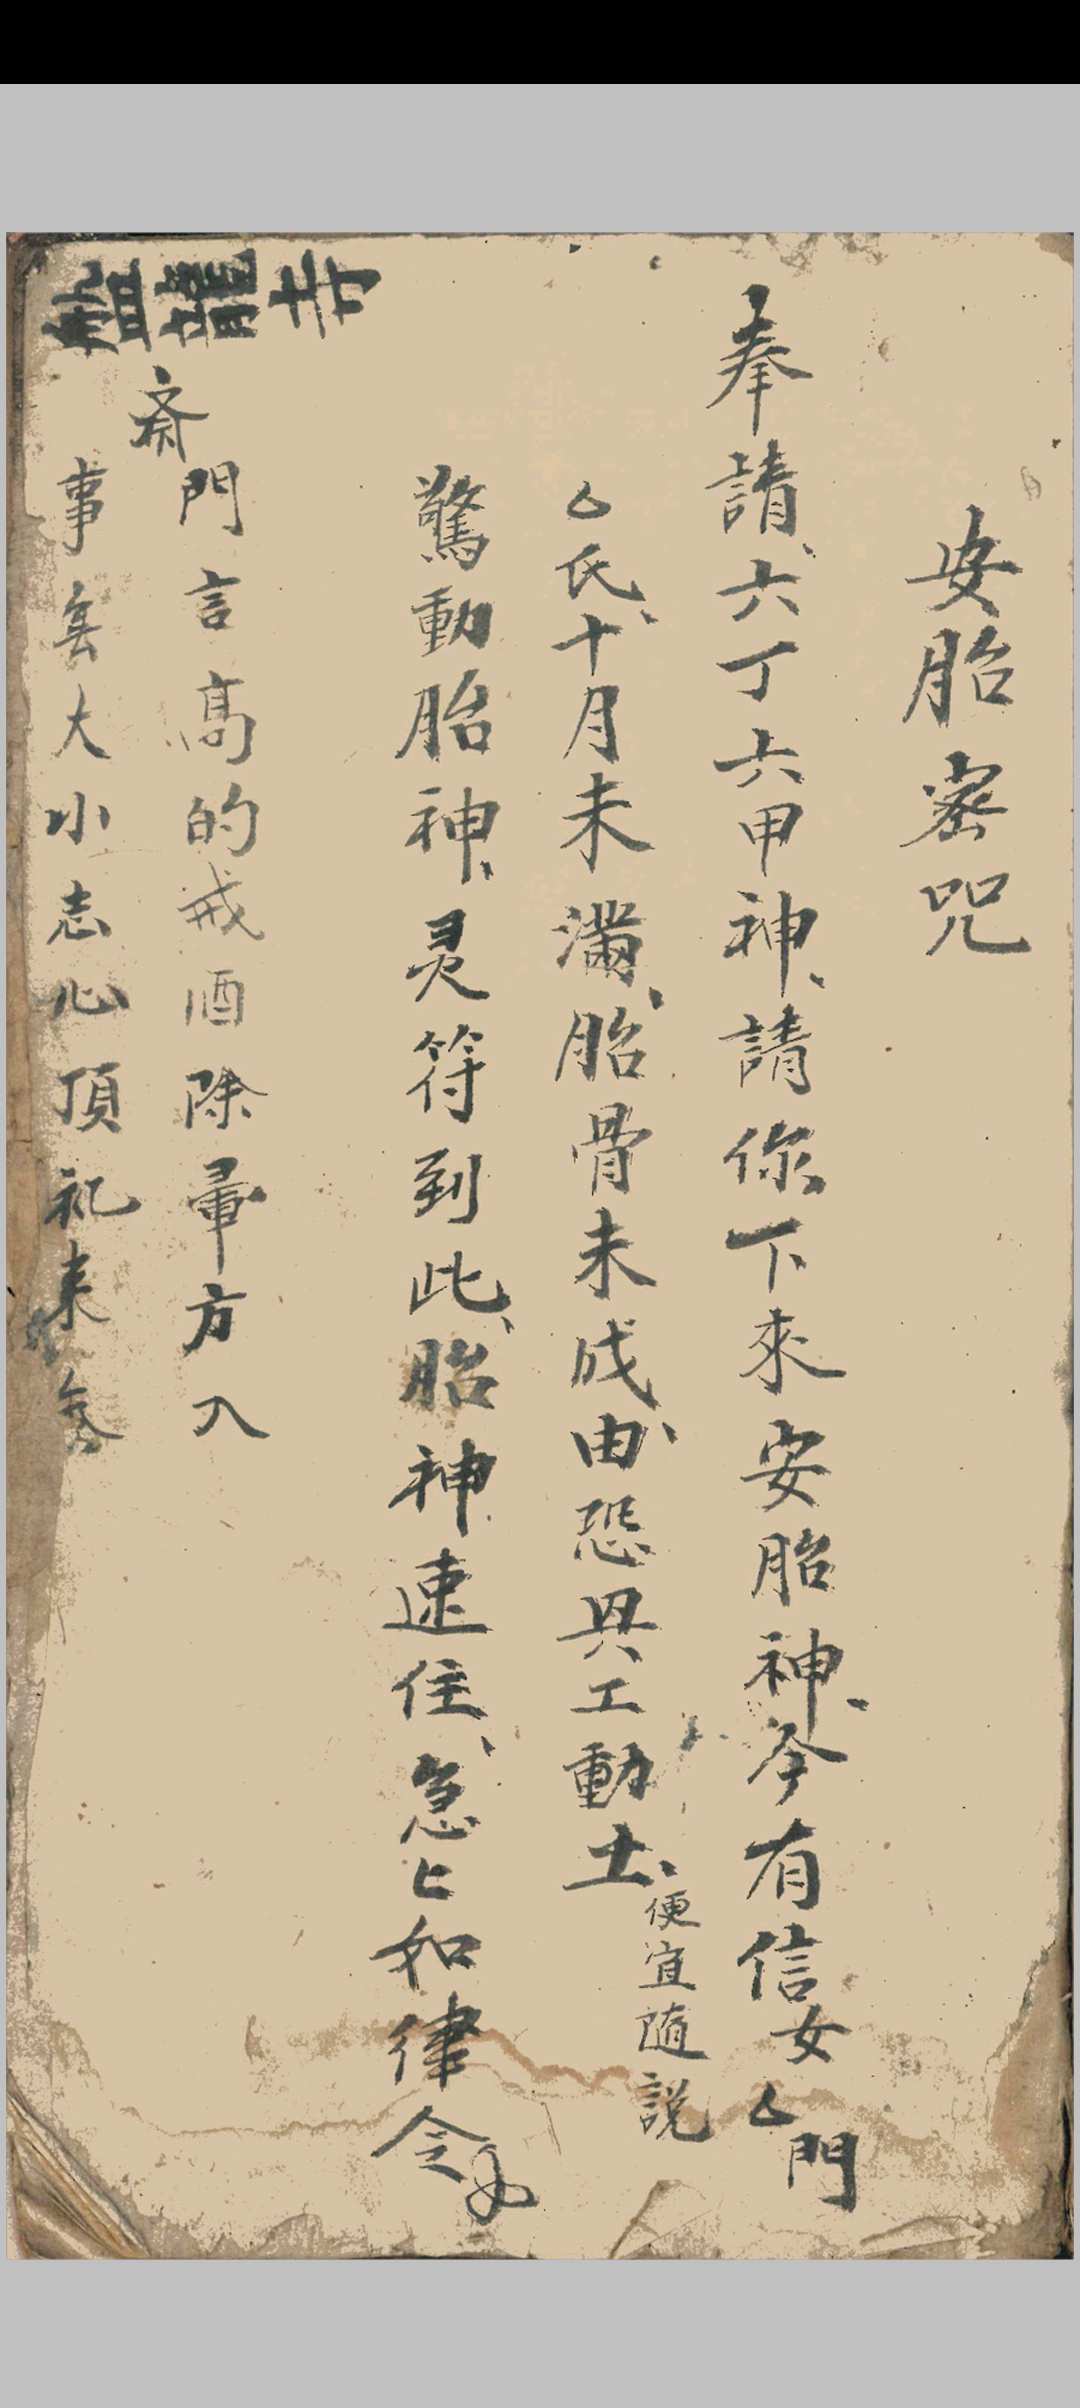 安胎密咒
奉請、六丁六甲神、請你下來安胎神、今有信女厶門
厶氏、十月未滿、胎骨未成、由恐興工動土、便宜隨說
驚動胎神、灵符到此、胎神速住、急匕如律令
斋門言高的戒酒除葷方入
事無大小志心頂礼来
龍寺